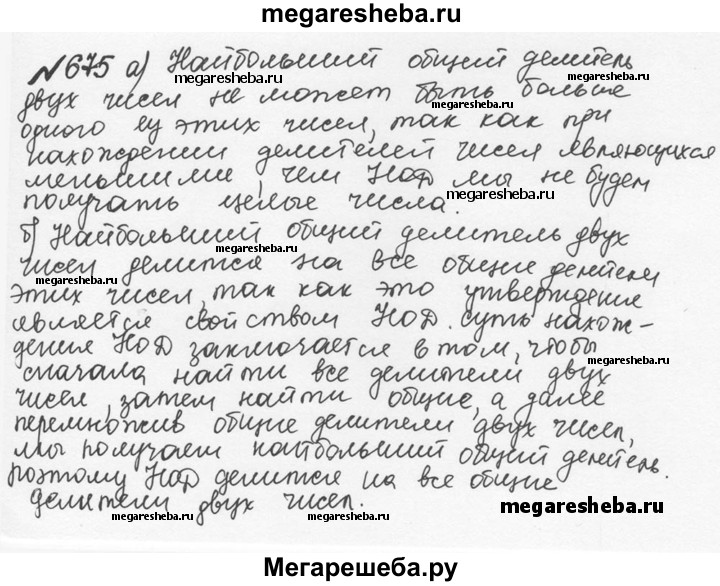 megaresheba.ru
№675 а) Наибольший общий делитель
megaresheba.ru megaresheba.ru
двух чисел не может быть больше
megaresheba.ru
одного из этих чисел, так как при
megaresheba.ru
нахождении делителей чисел являющихся
меньшими, чем НОД мы не будем
megaresheba.ru
получать целые числа.
б) Наибольший общий делитель двух
megaresheba.ru megaresheba.ru
чисел делится на все общие делители
megaresheba.ru
этих чисел, так как это утверждение
является свойством НОД. суть нахож-
дения НОД заключается в том, чтобы
megaresheba.ru
сначала найти все делители двух
чисел, затем найти общие, а далее
перемножив общие делители двух чисел,
megaresheba.ru
мы получаем наибольший общий делитель.
поэтому НОД делится на все общие
делители двух чисел.
megaresheba.ru megaresheba.ru megaresheba.ru
Мегарешеба.ру